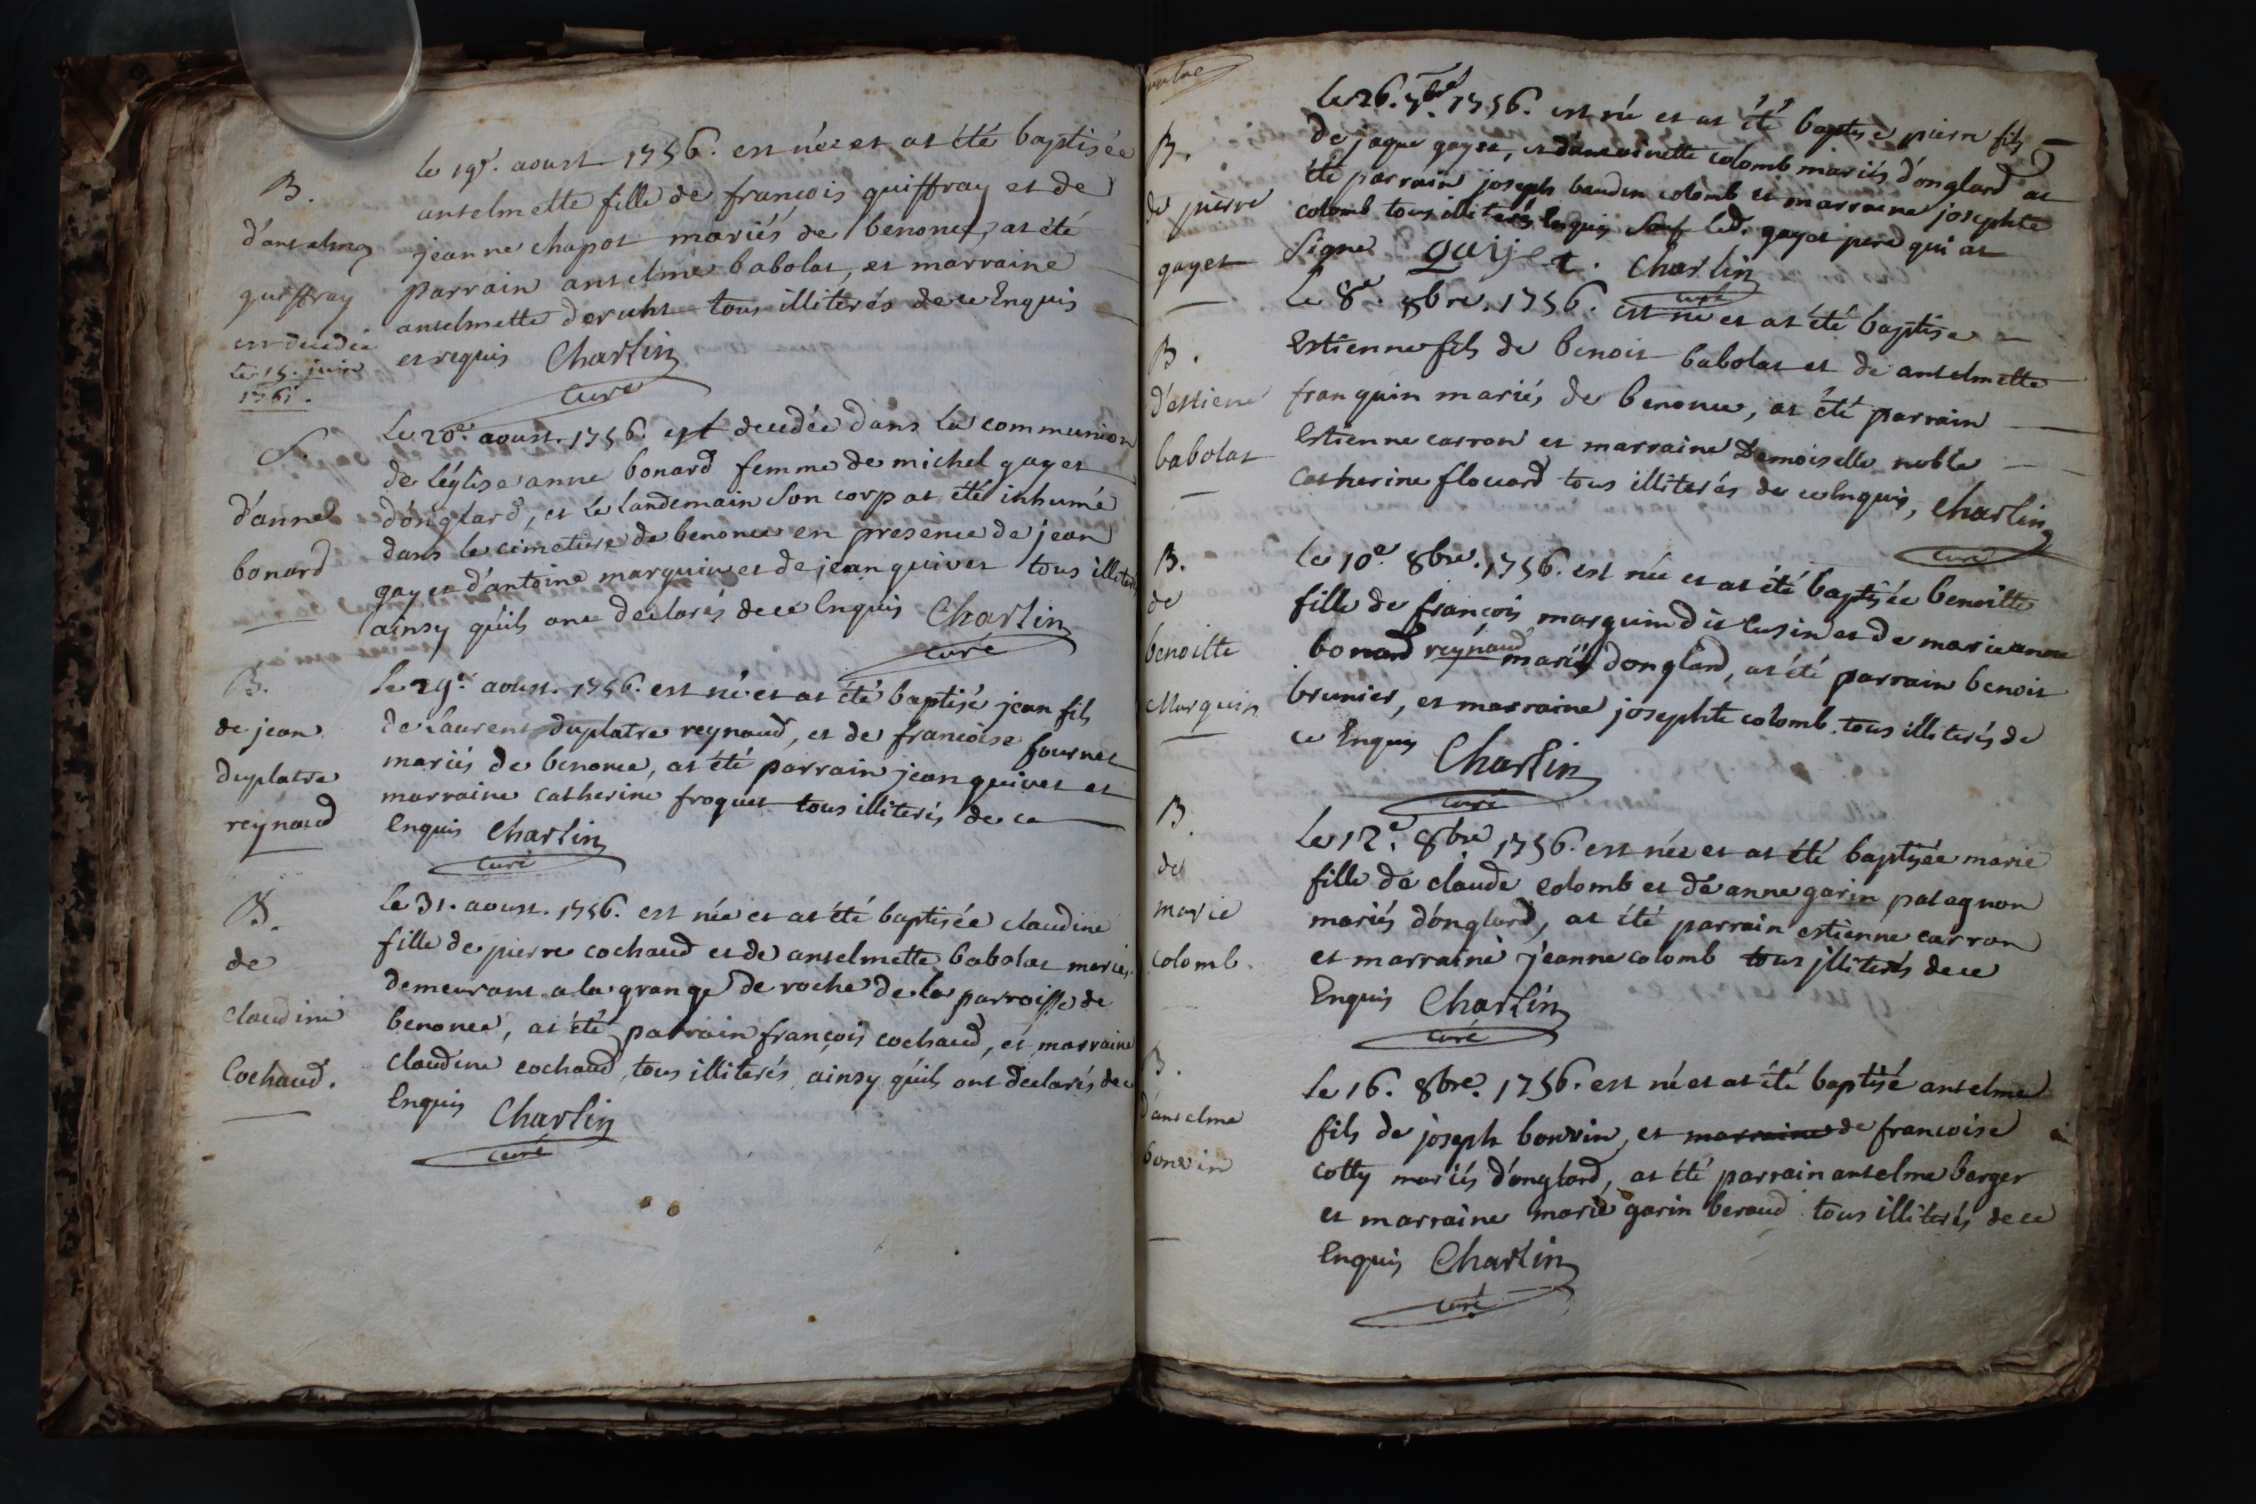 B.
d'anselme
quiffray
est decedée
le 15. juin
1761.
le 19e. aoust 1756. est née et at été baptisée
anselmette fille de francois quiffray et de
jeanne chapot mariés de benonce, at été
parrain anselme babolat, et marraine
anselmette tous illiterés de ce Enquis
et requis Charlin
curé
S.
d'anne
bonard
Le 20e. aoust. 1756. est decedée dans la communion
de l'église anne bonard femme de michel gayet
d'onglard, et le landemain son corp at été inhumé
dans le cimetiere de benonce en presence de jean
gayet d'antoine marguin et de jean quivet tous illiterés
ainsy qu'ils ont declarés de ce Enquis Charlin
curé
B.
de jean
duplatre
reynaud
Le 29e. aoust. 1756. est né et at été baptisé jean fils
de Laurent duplatre reynaud, et de francoise fournet
mariés de benonce, at été parrain jean quivet et
marraine catherine froquet tous illiterés de ce
Enquis Charlin
curé
B.
de
claudine
Cochaud.
Le 31. aoust. 1756. est née et at été baptisée claudine
fille de pierre cochaud et de anselmette babolat mariés,
demeurant a la grange de roche de la parroisse de
benonce, at été parrain françois cochaud, et marraine
claudine cochaud tous illiterés ainsy qu'ils ont declarés de ce
Enquis Charlin
curé
B.
de pierre
gayet
Le 26. 7bre 1756. est né et at été baptisé pierre fils
de jaque gayet, et d'antoinette colomb mariés d'onglard at
été parrain joseph baudin colomb et marraine josephte
colomb tous illiterés Enquis sauf led. gayet pere qui at
signe gaijet. Charlin
curé
B.
d'estiene
babolat
Le 8e. 8bre. 1756. est né et at été baptisé
Estienne fils de benoit babolat et de anselmette
franquin mariés de benonce, at été parrain
Estienne carron et marraine Demoiselle noble
Catherine flouard tous illiterés de ce Enquis, Charlin
curé
B.
de
benoitte
Marguin
Le 10e. 8bre. 1756. est née et at été baptisée benoitte
fille de françois marguin dit cusin et de marieanne
bonard reynaud mariés d'onglard, at été parrain benoit
brunier, et marraine josephte colomb. tous illiterés de
ce Enquis Charlin
curé
B.
de
marie
colomb.
Le 12e. 8bre 1756. est née et at été baptisée marie
fille de claude colomb et de anne garin patagnon
mariés d'onglard, at été parrain estienne carron
et marraine jeanne colomb tous jlliterés de ce
Enquis Charlin
curé
B.
d'anselme
bonvin
Le 16. 8bre. 1756. est né et at été baptisé anselme
fils de joseph bonvin, et marraine de francoise
cotty mariés d'onglard, at été parrain anselme berger
et marraine marie garin beraud tous illiterés de ce
Enquis Charlin
curé